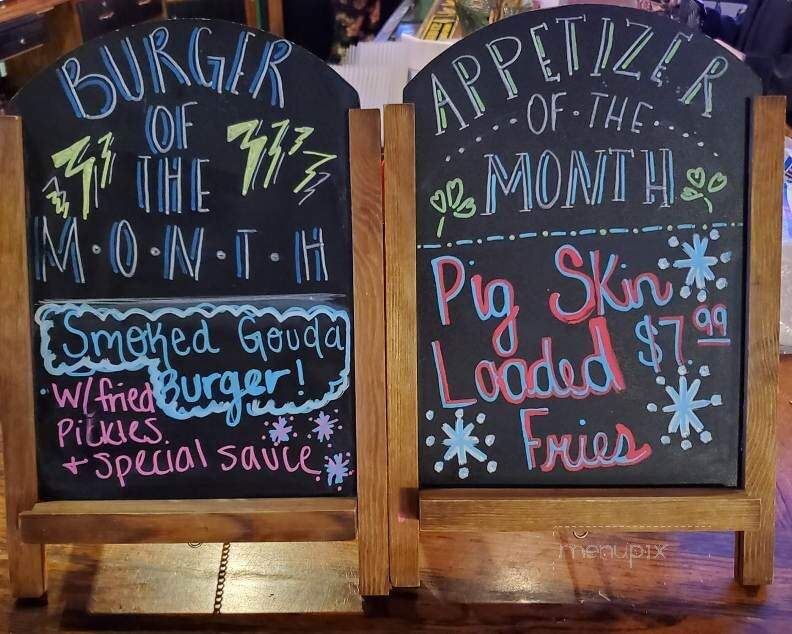 BURGER
OF
THE
M·O·N·T·H
Smoked Gouda
Burger!
W/fried
Pickles
+ special sauce
APPETIZER
OF·THE
MONTH
Pig Skin
$7.99
Loaded
Fries
menupix